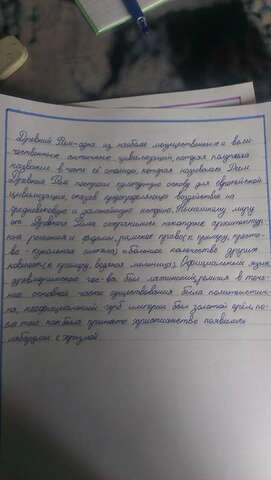 Древний Рим-одна из наиболее могущественных и вели-
чественных античных цивилизаций, которая получила
название в честь её столицы, которая называлась Рим.
Древний Рим построил культурную основу для европейской
цивилизации, оказав определяющее воздействие на
средневековую и дальнейшую историю. Нынешнему миру
от Древнего Рима сохранились некоторые архитектур-
ные решения и формы, римское право (к примеру, кресто-
во - купольная система) и большое количество других
новшеств (к примеру, водяная мельница). Официальным языком
древнеримского гос-ва был латинский, религия в тече-
ние основной части существования была политеистич-
на, неофициальный герб империи был золотой орёл, по-
сле того как было принято христианство появились
лабарумы с хризмой.